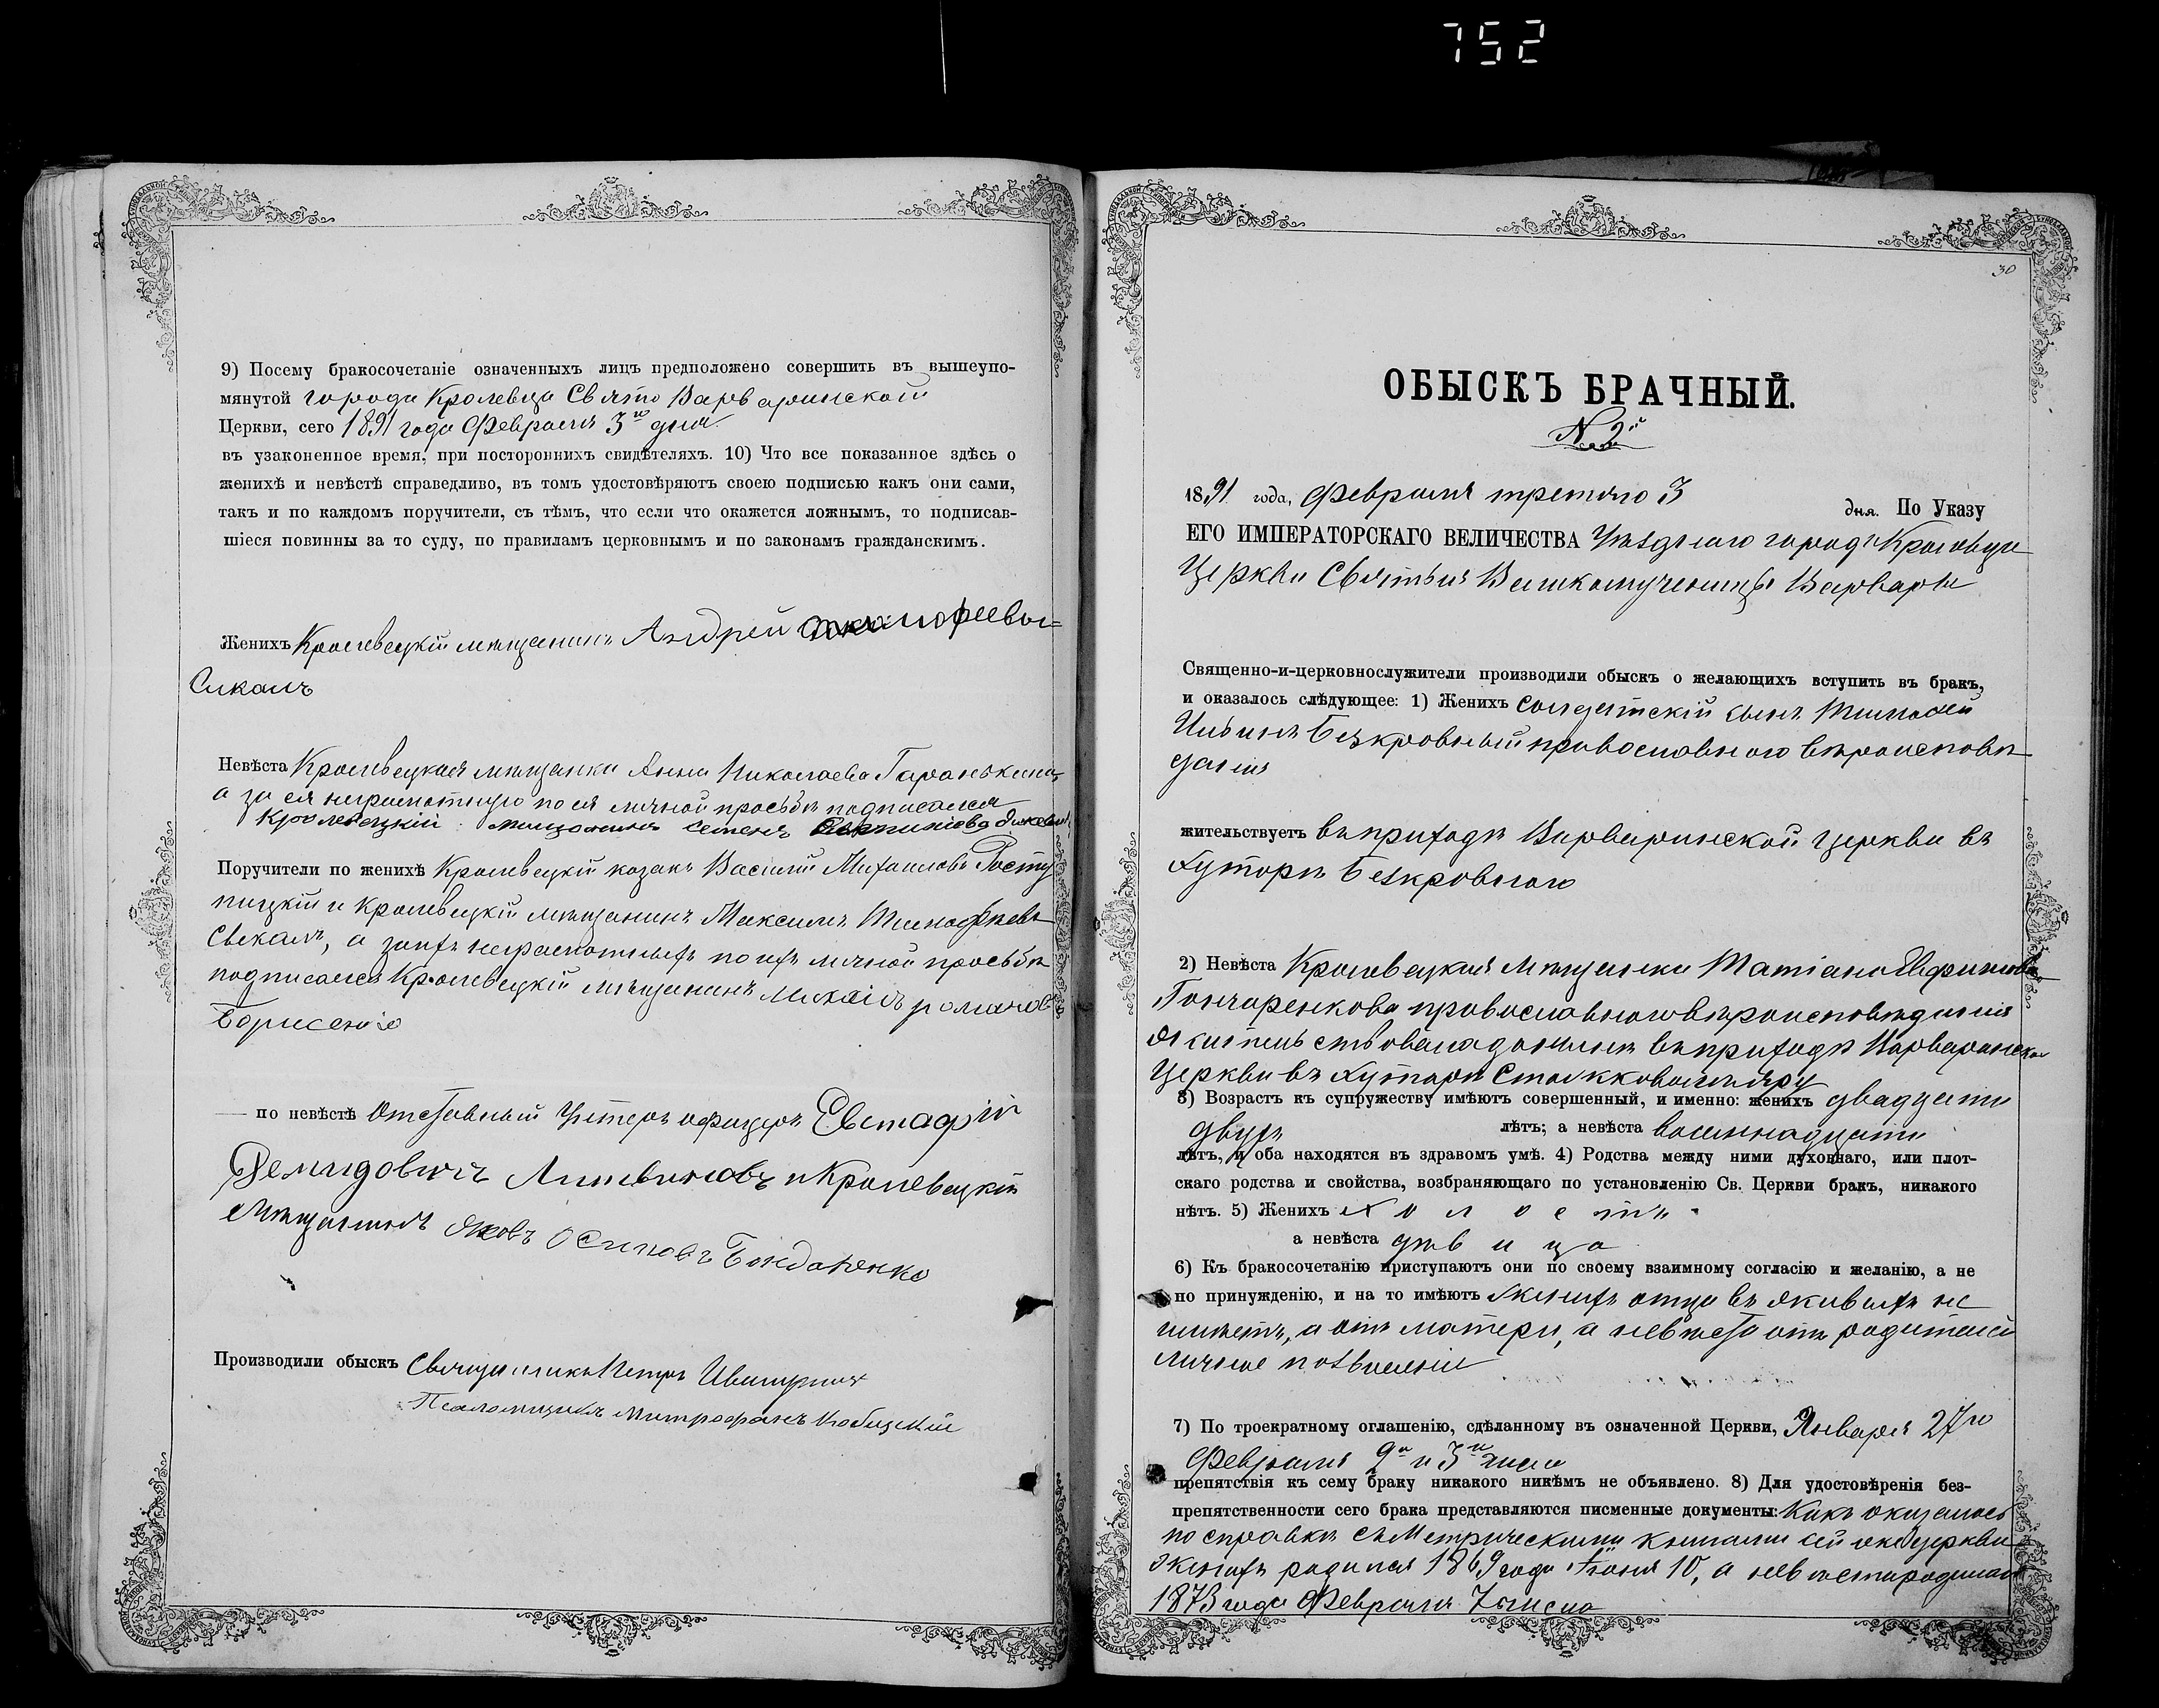 752
9) Посему бракосочетаніе означенныхъ лицъ предположено совершить въ вышеупо-
мянутой города Кролевца Свято Варваринской
Церкви, сего 1891 года Февраля 3го дня
въ узаконенное время, при постороннихъ свидѣтеляхъ. 10) Что все показанное здѣсь о
женихѣ и невѣстѣ справедливо, въ томъ удостовѣряютъ своею подписью какъ они сами,
такъ и по каждомъ поручители, съ тѣмъ, что если что окажется ложнымъ, то подписав-
шіеся повинны за то суду, по правиламъ церковнымъ и по законамъ гражданскимъ.
Женихъ Кролевецкій мѣщанинъ Андрей
Невѣста Кролевецкая мѣщанка Анна Николаева
а за ея неграмотную по ея личной просьбѣ подписался
Кролевецкій мѣщанинъ Семенъ
Поручители по женихѣ Кролевецкій козакъ Василій Михаиловъ Росту
пицкій и Кролевецкій мѣщанинъ Максимъ Тимофѣевъ
Свекалъ, а за нихъ неграмотныхъ по ихъ личной просьбѣ
подписался Кролевецкій мѣщанинъ Михаилъ романовъ
Борисенко
— по невѣстѣ Отставный Унтеръ офицеръ Евстафій
Демидовичъ Литвиновъ и Кролевецкій
мѣщанинъ Яковъ Осиповъ Бондаренко
Производили обыскъ Священникъ Петръ
Псаломщикъ Митрофанъ
30
ОБЫСКЪ БРАЧНЫЙ.
№ 2й
1891 года, Февраля третяго 3 дня. По Указу
ЕГО ИМПЕРАТОРСКАГО ВЕЛИЧЕСТВА Уѣзднаго города Кролевца
Церкви Святыя Великомученицы Варвары
Священно-и-церковнослужители производили обыскъ о желающихъ вступить въ бракъ,
и оказалось слѣдующее: 1) Женихъ Солдатскій сынъ Тимофей
Ильинъ Безкровный православного вѣроисповѣ
данія
жительствуетъ въ приходѣ Варваринской церкви въ
хуторѣ Безкровного
2) Невѣста Кролевецкая мѣщанка Татіана
Гончаренкова православного вѣроисповѣданія
жительствовала донынѣ въ приходѣ Варваринской
Церкви въ хуторѣ
3) Возрастъ къ супружеству имѣютъ совершенный, и именно: женихъ двадцати
двухъ лѣтъ; а невѣста восемнадцати
лѣтъ, и оба находятся въ здравомъ умѣ. 4) Родства между ними духовнаго, или плот-
скаго родства и свойства, возбраняющаго по установленію Св. Церкви бракъ, никакого
нѣтъ. 5) Женихъ холостъ
а невѣста дѣвица
6) Къ бракосочетанію приступаютъ они по своему взаимному согласію и желанію, а не
по принужденію, и на то имѣютъ женихъ отца въ живыхъ не
имѣетъ, а отъ матери, а невѣста отъ родителей
личное позволеніе
7) По троекратному оглашенію, сдѣланному въ означенной Церкви, Января 27го
Февраля 2го и 3го числа
препятствія къ сему браку никакого никѣмъ не объявлено. 8) Для удостовѣренія без-
препятственности сего брака представляются писменные документы: Какъ оказалось
по справкѣ съ Метрическими книгами сей же церкви
женихъ родился 1869 года Іюня 10, а невѣста родилась
1873 года Февраля 7 числа